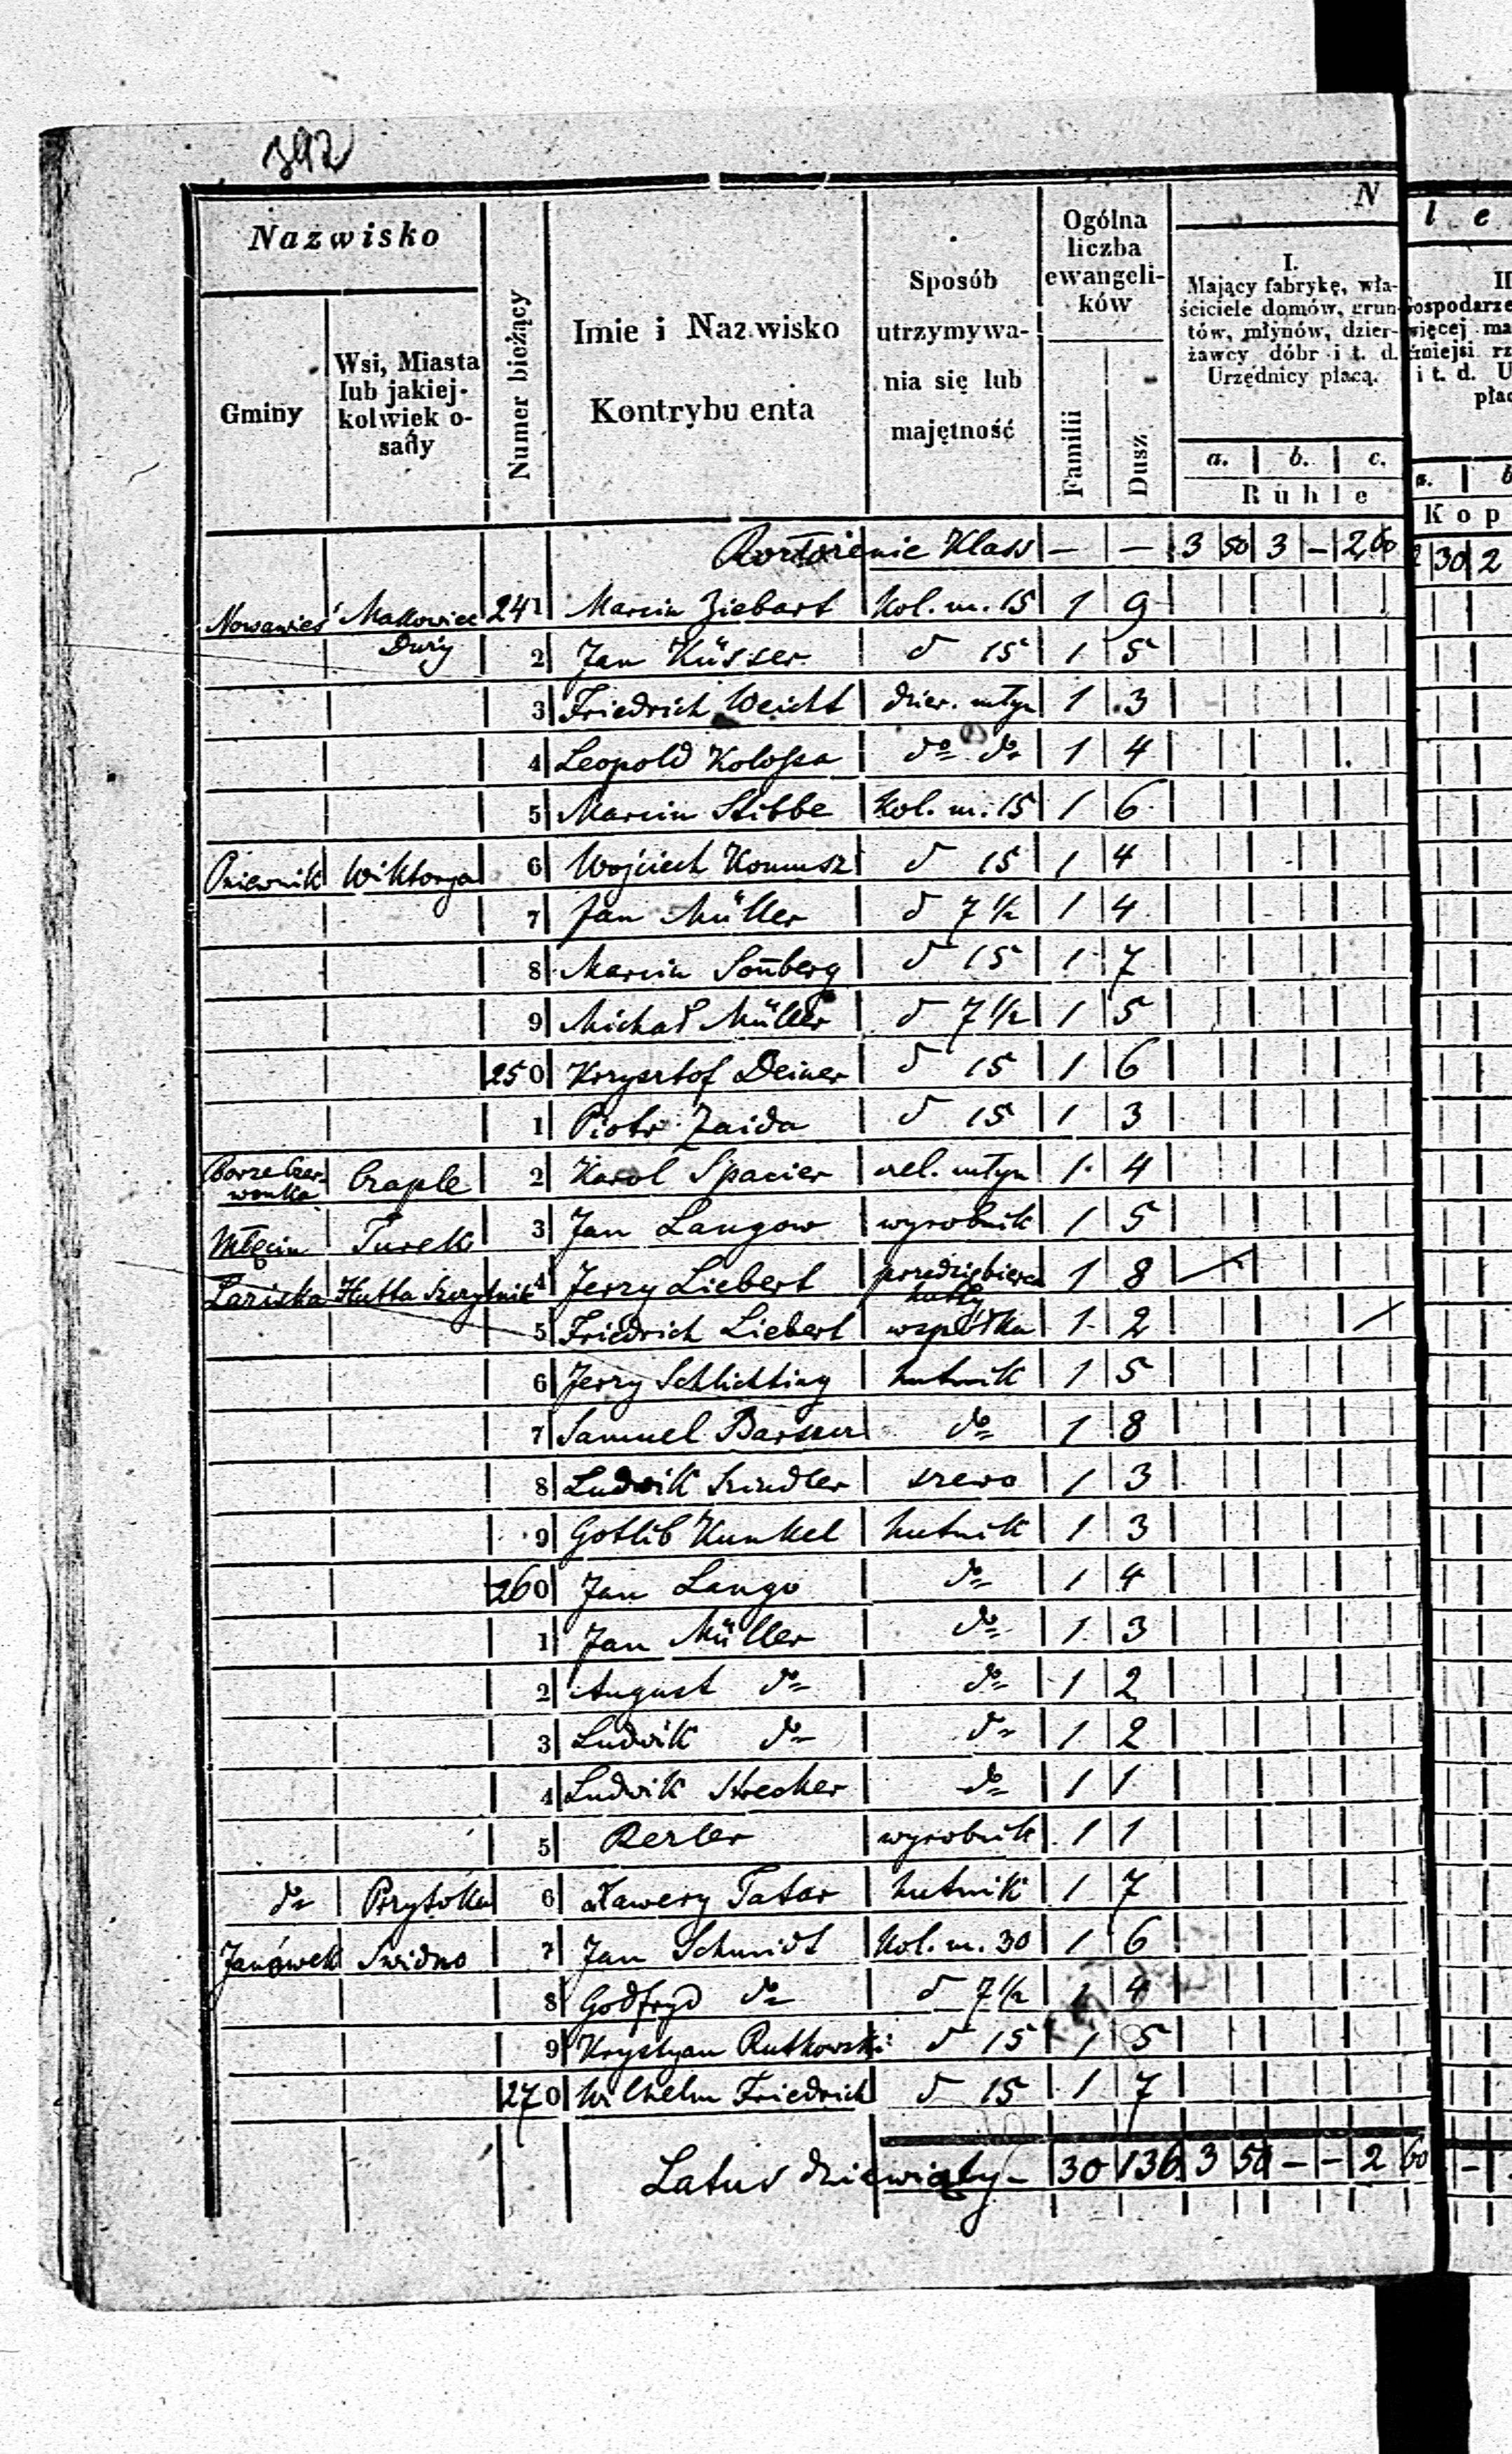 392
Nazwisko
Gminy
Wsi, Miasta lub jakiej-kolwiek o-sady
Numer bieżący
Imie i Nazwisko
Kontrybuenta
Sposób utrzymywa-nia się lub majętność
Ogólna liczba ewangeli-ków
Familii
Dusz
N
I.
Mający fabrykę, wła-
ściciele domów, grun-
tów, młynów, dzier-
żawcy dóbr i t. d.
Urzędnicy płacą.
a. b. c.
Ruble
l e
II
Gospodarze
więcej ma
źniejsi rz
i t. d. U
płac
a. b
Kop
Klass — — 3 50 3 – 2 60 30 2
Nowawieś Makowiec Duży 241 Marcin Ziebart Kol. m. 15 1 9
2 Jan Küsser d 15 1 5
3 Friedrich Weicht dzier. młyn 1 3
4 Leopold Kolossa do do 1 4
5 Marcin Stibbe Kol. m. 15 1 6
Pniewnik Wiktorya 6 Wojciech d 15 1 4
7 Jan Müller d 7½ 1 4
8 Marcin Soñberg d 15 1 7
9 Michał Müller d 7½ 1 5
250 Krysztof Deiner d 15 1 6
1 Piotr Zaida d 15 1 3
Borze Czer-wonka Czaple 2 Karol Spacier młyn 1 4
Młęcin Turek 3 Jan Langow wyrobnik 1 5
Hutta 4 Jerzy Liebert przedsiębierca hutty 1 8
5 Friedrich Liebert wspólka 1 2
6 Jerzy Schlichting hutnik 1 5
7 Samuel do 1 8
8 Ludwik Szindler szewc 1 3
9 Gotlib Kunkel hutnik 1 3
260 Jan Lange do 1 4
1 Jan Müller do 1 3
2 August do do 1 2
3 Ludwik do do 1 2
4 Ludwik Strecker do 1 1
5 wyrobnik 1 1
do Przytoka 6 Xawery Tatar hutnik 1 7
Janówek Swidno 7 Jan Schmidt Kol. m. 30 1 6
8 Godfryd do d 7½ 1 4
9 Krystyan Rutkowski d 15 1 5
270 Wilhelm Friedrich d 15 1 7
Latus dziewiąty – 30 136 3 50 – – 2 60 –